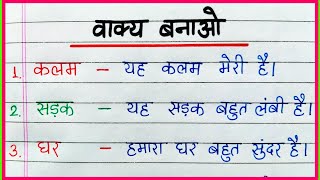 वाक्य बनाओ
1. कलम – यह कलम मेरी है।
2. सड़क – यह सड़क बहुत लंबी है।
3. घर – हमारा घर बहुत सुंदर है।